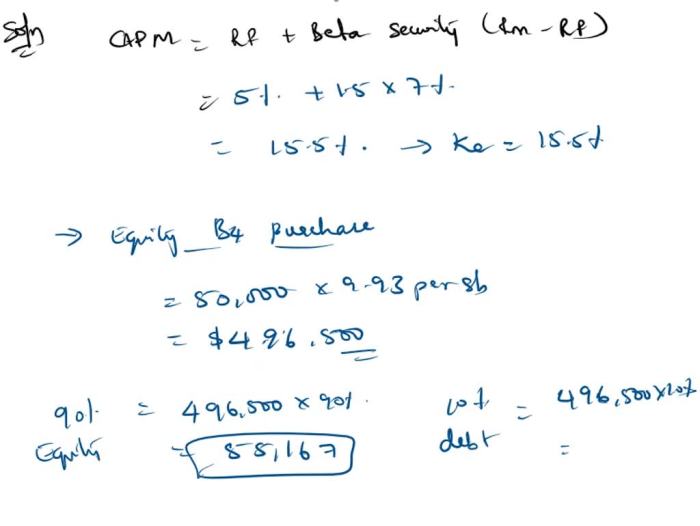 Soln
CAPM = RF + Beta security (Rm - RF)
= 5% + 1.5 x 7%
= 15.5%. → Ke = 15.5%
→ Equity B4 purchase
= 50,000 x 9.93 per sh
= $496,500
90% = 496,500 x 90%.
Equity = 55,167
10% = 496,500 x 10%
debt =